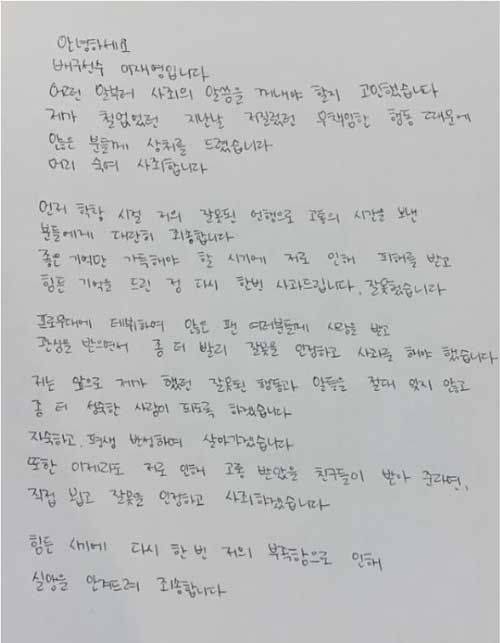 안녕하세요
배구선수 이재영입니다
어떤 말부터 사죄의 말씀을 꺼내야 할지 고민했습니다
제가 철없었던 지난날 저질렀던 무책임한 행동 때문에
많은 분들께 상처를 드렸습니다
머리 숙여 사죄합니다
먼저 학창 시절 저의 잘못된 언행으로 고통의 시간을 보낸
분들에게 대단히 죄송합니다
좋은 기억만 가득해야 할 시기에 저로 인해 피해를 받고
힘든 기억을 드린 점 다시 한번 사과드립니다, 잘못했습니다
프로무대에 데뷔하여 많은 팬 여러분들께 사랑을 받고
관심을 받으면서 좀 더 빨리 잘못을 인정하고 사죄를 해야 했습니다
저는 앞으로 제가 했던 잘못된 행동과 말들을 절대 잊지 않고
좀 더 성숙한 사람이 되도록 하겠습니다
자숙하고, 평생 반성하며 살아가겠습니다
또한 이제라도 저로 인해 고통 받았을 친구들이 받아 준라면,
직접 뵙고 잘못을 인정하고 사죄하겠습니다
힘든 시기에 다시 한 번 저의 부족함으로 인해
실망을 안겨드려 죄송합니다